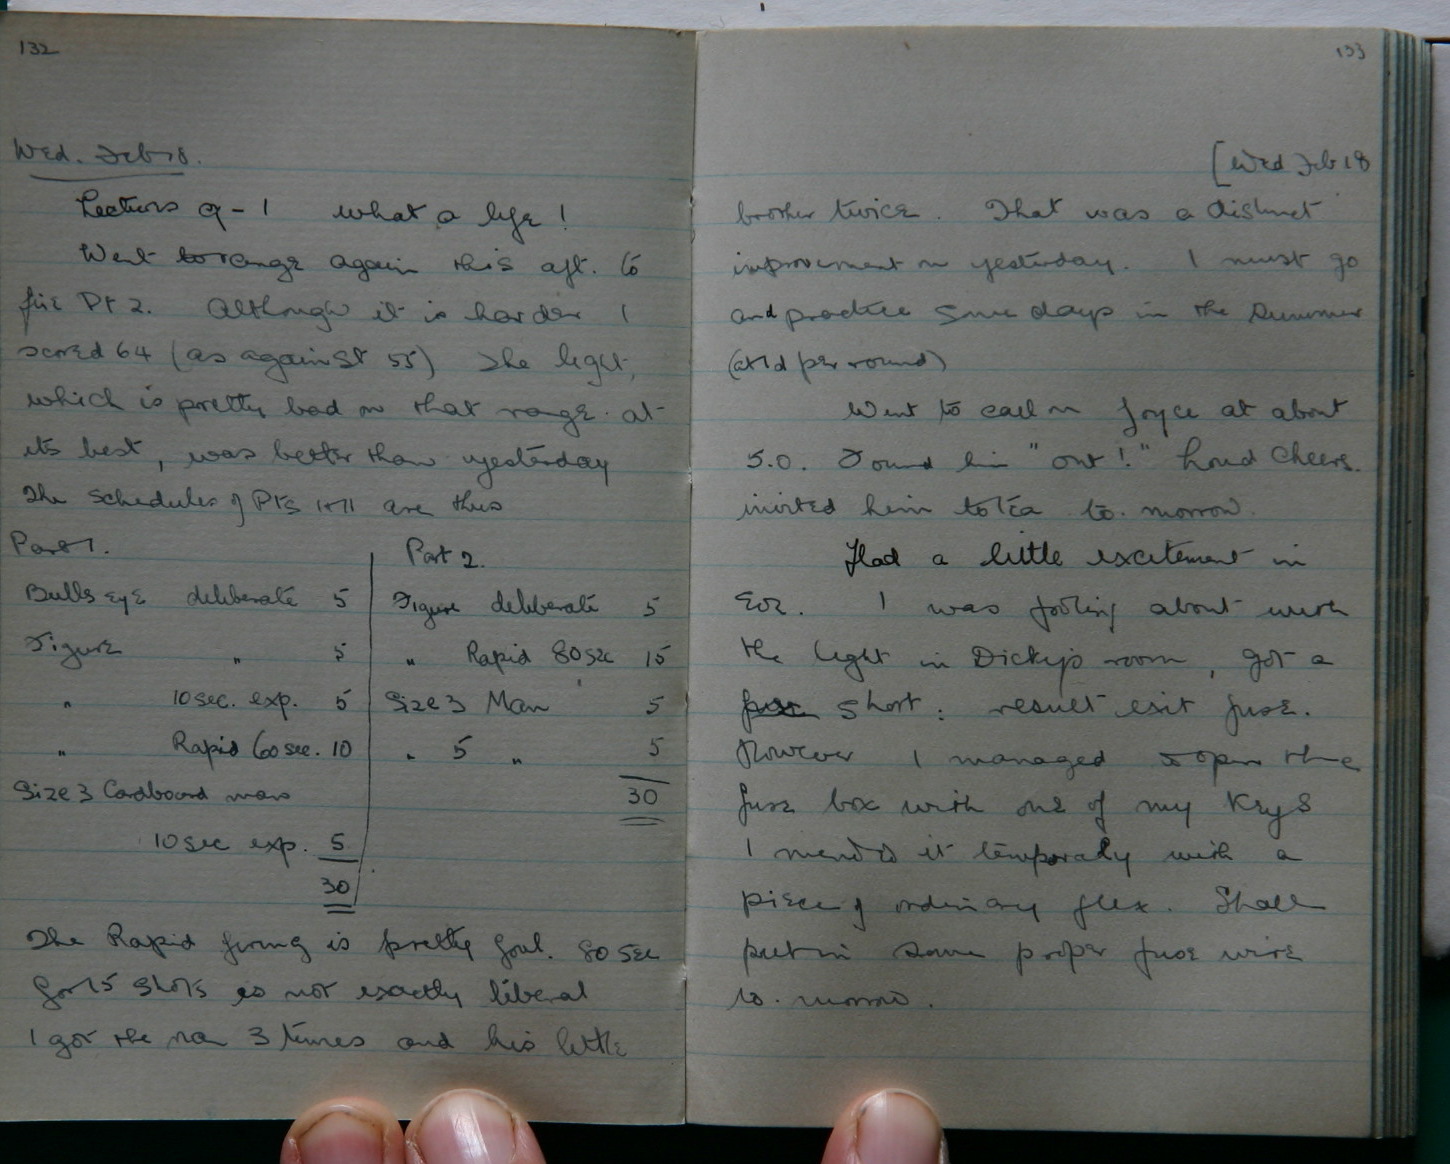 132
Wed. Feb 18.
Lectures 9-1 what a life!
Went to range again this aft. to
fire Pt 2. Although it is harder I
scored 64 (as against 55) The light,
which is pretty bad on that range at
its best, was better than yesterday
The schedules of Pts I & II are thus
Part 1.
Bulls eye deliberate 5
Figure " 5
" 10 sec. exp. 5
" Rapid 60 sec. 10
Size 3 Cardboard man
10 sec exp. 5
30
Part 2.
Figure deliberate 5
" Rapid 80 sec 15
Size 3 Man 5
" 5 " 5
30
The Rapid firing is pretty foul. 80 sec
for 15 shots is not exactly liberal
I got the man 3 times and his little
133
[Wed Feb 18
brother twice. That was a distinct
improvement on yesterday. I must go
and practice some days in the summer
(at 1d per round)
Went to call on Joyce at about
5.0. Found him "out!" Loud cheers.
invited him to tea to-morrow.
Had a little excitement in
Eve. I was fooling about with
the light in Dicky's room, got a
fuse short: result exit fuse.
However I managed to open the
fuse box with one of my keys
I mended it temporarily with a
piece of ordinary flex. Shall
put in some proper fuse wire
to-morrow.